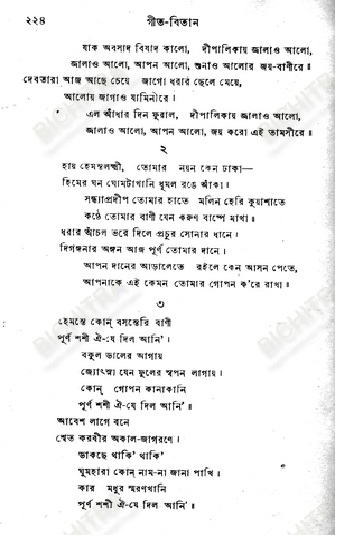 ২২৪
গীত-বিতান
যাক অবসাদ বিষাদ কালো, দীপালিকায় জ্বালাও আলো,
জ্বালাও আলো, আপন আলো, শুনাও আলোর জয়-বাণীরে।
দেবতারা আজ আছে চেয়ে জাগো ধরার ছেলে মেয়ে,
আলোয় জাগাও যামিনীরে।
এল আঁধার দিন ফুরাল, দীপালিকায় জ্বালাও আলো,
জ্বালাও আলো, আপন আলো, জয় করো এই তামসীরে।
২
হায় হেমন্তলক্ষ্মী, তোমার নয়ন কেন ঢাকা—
হিমের ঘন ঘোমটাখানি ধূমল রঙে আঁকা।
সন্ধ্যাপ্রদীপ তোমার হাতে মলিন হেরি কুয়াশাতে
কণ্ঠে তোমার বাণী যেন করুণ বাষ্পে মাখা।
ধরার আঁচল ভরে দিলে প্রচুর সোনার ধানে।
দিগঙ্গনার অঙ্গন আজ পূর্ণ তোমার দানে।
আপন দানের আড়ালেতে রইলে কেন আসন পেতে,
আপনাকে এই কেমন তোমার গোপন ক'রে রাখা।
৩
হেমন্তে কোন্ বসন্তেরি বাণী
পূর্ণ শশী ঐ-যে দিল আনি'।
বকুল ডালের আগায়
জ্যোৎস্না যেন ফুলের স্বপন লাগায়।
কোন্ গোপন কানাকানি
পূর্ণ শশী ঐ-যে দিল আনি'।
আবেশ লাগে বনে
শ্বেত করবীর অকাল-জাগরণে।
ডাকছে থাকি' থাকি'
ঘুমহারা কোন্ নাম-না জানা পাখি।
কার মধুর স্মরণখানি
পূর্ণ শশী ঐ-যে দিল আনি'।